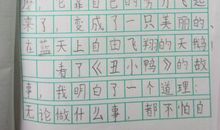 ，它靠自己的努力飞起
来了，变成了一只美丽的、
在蓝天上自由飞翔的天鹅！
看了《丑小鸭》的故
事，我明白了一个道理：
无论做什么事，都不怕自